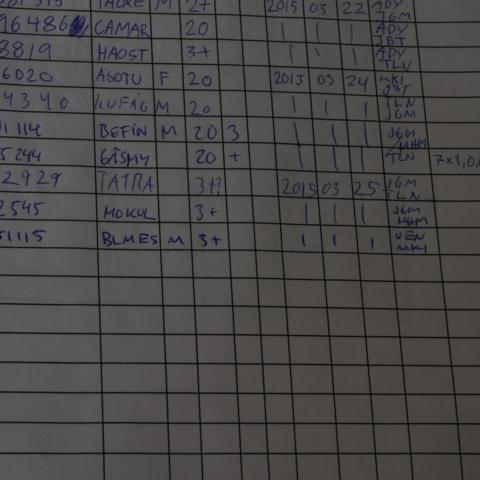 M 2+ 2015 03 22 ADY JGM
96486 CAMAR 20 | | | ADY JBT
8819 HAOST 3+ | | | ADY TLV
6020 ASOTU F 20 2015 03 24 MKI JBT
4340 M 20 | | | TLN JGM
1114 BEFIN M 20 3 | | | JGM MHM
5244 GISMY 20 + | | | TLN 7×1,0
2929 TATRA 3+? 2015 03 25 JGM TLN
2545 MOKUL 3+ | | | JGM MHM
51115 BLMES M 3+ | | | VEN MKI